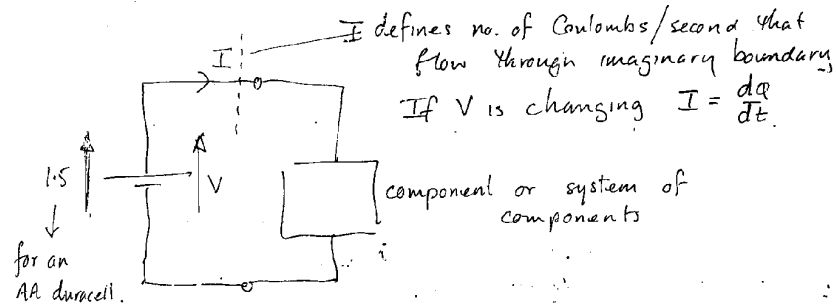 I defines no. of Coulombs/second that
flow through imaginary boundary
If V is changing I = dQ/dt.
I
1.5
V
component or system of
components
for an
AA duracell.